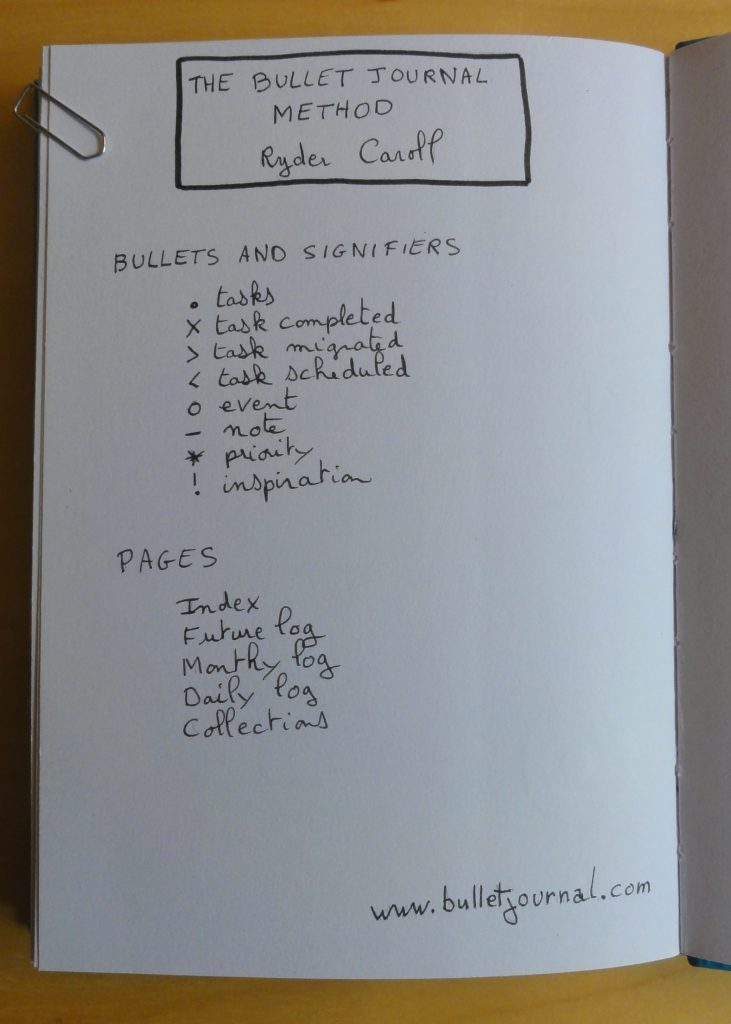 THE BULLET JOURNAL
METHOD
Ryder Caroll
BULLETS AND SIGNIFIERS
• tasks
x task completed
> task migrated
< task scheduled
o event
– note
* priority
! inspiration
PAGES
Index
Future log
Monthly log
Daily log
Collections
www.bulletjournal.com